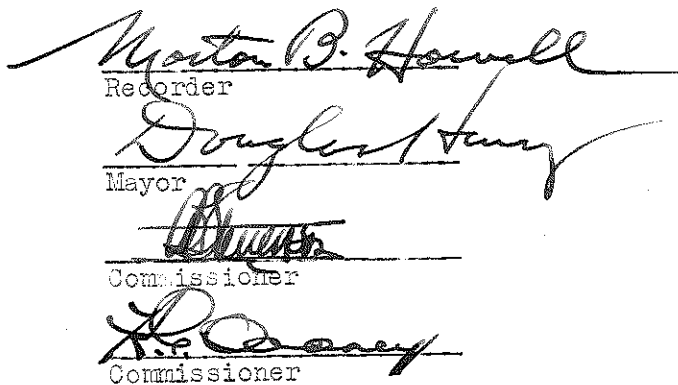 Morton B. Howell
Recorder
Douglas Henry
Mayor
Commissioner
Commissioner